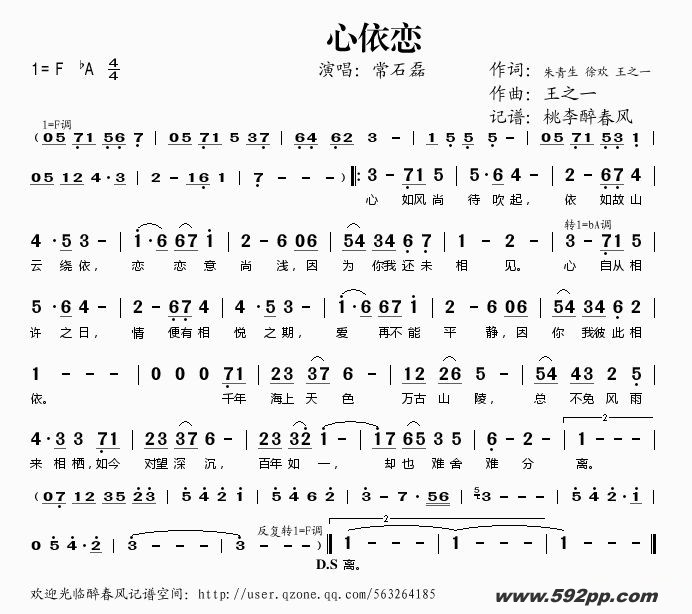 心依恋
1=F ♭A 4/4
演唱：常石磊
作词：朱青生 徐欢 王之一
作曲：王之一
记谱：桃李醉春风
1=F调
( 05 71 56 7 | 05 71 5 37 | 64 62 3 - | 1 5 5 - | 05 71 53 1 |
05 12 4·3 | 2 - 16 1 | 7 - - - ) ‖: 3 - 71 5 | 5·6 4 - | 2 - 67 4 |
心 如风尚 待 吹起， 依 如故山
转1=bA调
4·5 3 - | 1·6 67 1 | 2 - 6 06 | 54 34 6 7 | 1 - 2 - | 3 - 71 5 |
云绕依， 恋 恋意 尚 浅，因 为 你我还未 相 见。 心 自从相
5·6 4 - | 2 - 67 4 | 4·5 3 - | 1·6 67 1 | 2 - 6 06 | 54 34 6 2 |
许 之日， 情 便有相 悦之期， 爱 再不能 平 静，因 你 我彼此相
1 - - - | 0 0 0 71 | 23 37 6 - | 12 26 5 - | 54 43 2 5 |
依。 千年 海上天色 万古山陵， 总 不免风雨
4·3 3 71 | 23 37 6 - | 23 32 1 - | 17 65 3 5 | 6·2 - | 1 - - - |
来相栖，如今 对望深沉， 百年如一， 却也 难舍 难分 离。
2
( 07 12 35 23 | 5 4 2 1 | 5 4 6 2 | 3 - - 56 | 3 - - - | 5 4 2·1 |
反复转1=F调
0 5 4·2 | 3 - - - | 3 - - - ) :‖ 1 - - - | 1 - - - | 1 - - - ‖
2
D.S 离。
欢迎光临醉春风记谱空间：http://user.qzone.qq.com/563264185
www.592pp.com